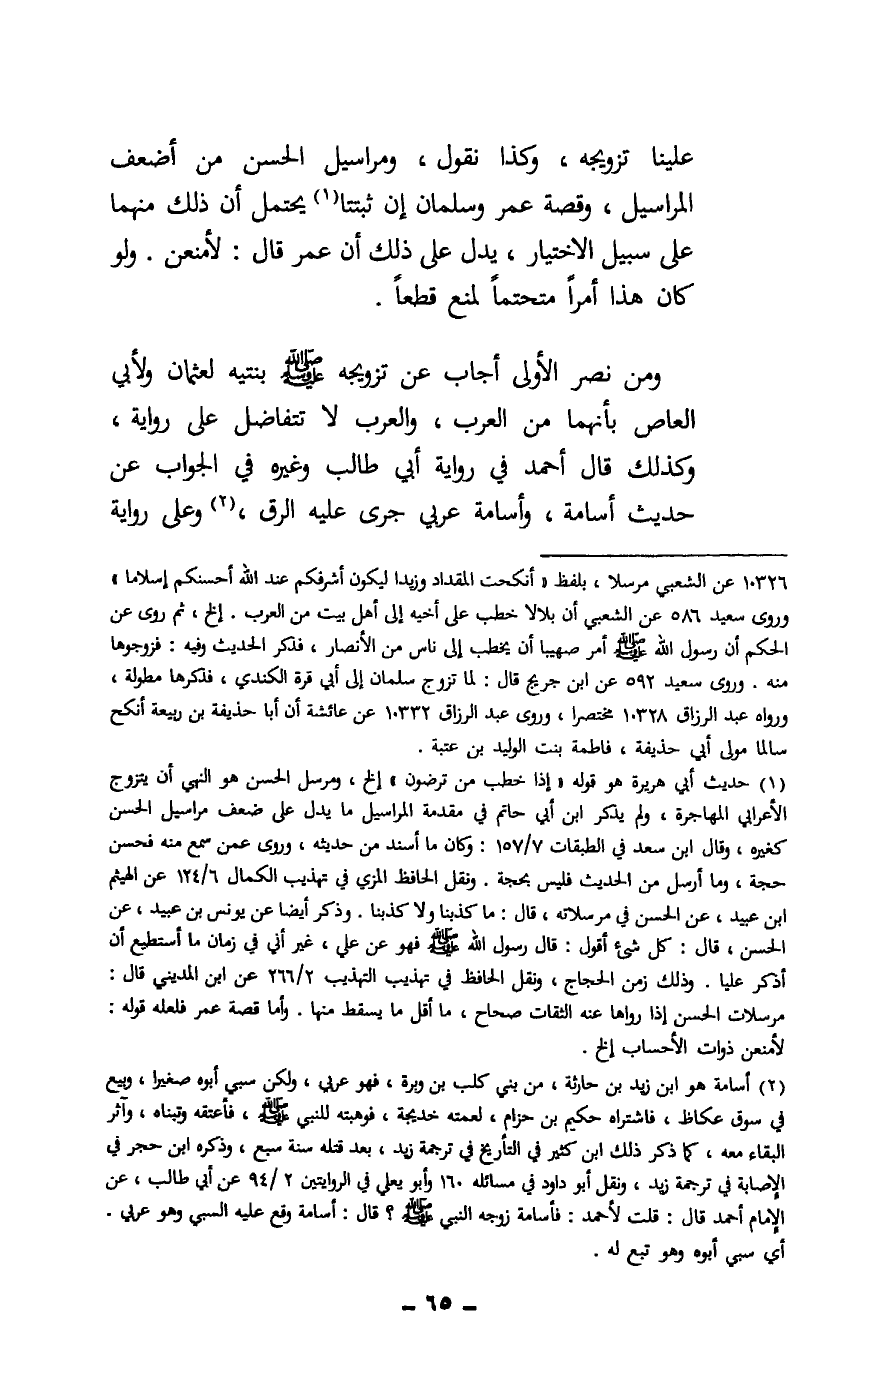 علينا تزويجه ، وكذا نقول ، ومراسيل الحسن من أضعف
المراسيل ، وقصة عمر وسلمان إن ثبتتا(١) يحتمل أن ذلك منهما
على سبيل الاختيار ، يدل على ذلك أن عمر قال : لأمنعن . ولو
كان هذا أمراً متحتماً لمنع قطعاً .
ومن نصر الأولى أجاب عن تزويجه ﷺ بنتيه لعثمان ولأبي
العاص بأنهما من العرب ، والعرب لا تتفاضل على رواية ،
وكذلك قال أحمد في رواية أبي طالب وغيره في الجواب عن
حديث أسامة ، وأسامة عربي جرى عليه الرق ،(٢) وعلى رواية
١٠٣٢٦ عن الشعبي مرسلا ، بلفظ « أنكحت المقداد وزيدا ليكون أشرفكم عند الله أحسنكم إسلاما »
وروى سعيد ٥٨٦ عن الشعبي أن بلالا خطب على أخيه إلى أهل بيت من العرب . إلخ ، ثم روى عن
الحكم أن رسول الله ﷺ أمر صهيبا أن يخطب إلى ناس من الأنصار ، فذكر الحديث وفيه : فزوجوها
منه . وروى سعيد ٥٩٢ عن ابن جريج قال : لما تزوج سلمان إلى أبي قرة الكندي ، فذكرها مطولة ،
ورواه عبد الرزاق ١٠٣٢٨ مختصرا ، وروى عبد الرزاق ١٠٣٣٢ عن عائشة أن أبا حذيفة بن ربيعة أنكح
سالما مولى أبي حذيفة ، فاطمة بنت الوليد بن عتبة .
(١) حديث أبي هريرة هو قوله « إذا خطب من ترضون » إلخ ، ومرسل الحسن هو النهي أن يتزوج
الأعرابي المهاجرة ، ولم يذكر ابن أبي حاتم في مقدمة المراسيل ما يدل على ضعف مراسيل الحسن
كغيره ، وقال ابن سعد في الطبقات ١٥٧/٧ : وكان ما أسند من حديثه ، وروى عمن سمع منه فحسن
حجة ، وما أرسل من الحديث فليس بحجة . ونقل الحافظ المزي في تهذيب الكمال ١٢٤/٦ عن الهيثم
ابن عبيد ، عن الحسن في مرسلاته ، قال : ما كذبنا ولا كذبنا . وذكر أيضا عن يونس بن عبيد ، عن
الحسن ، قال : كل شئ أقول : قال رسول الله ﷺ فهو عن علي ، غير أني في زمان ما أستطيع أن
أذكر عليا . وذلك زمن الحجاج ، ونقل الحافظ في تهذيب التهذيب ٢٦٦/٢ عن ابن المديني قال :
مرسلات الحسن إذا رواها عنه الثقات صحاح ، ما أقل ما يسقط منها . وأما قصة عمر فلعله قوله :
لأمنعن ذوات الأحساب إلخ .
(٢) أسامة هو ابن زيد بن حارثة ، من بني كلب بن وبرة ، فهو عربي ، ولكن سبي أبوه صغيرا ، وبيع
في سوق عكاظ ، فاشتراه حكيم بن حزام ، لعمته خديجة ، فوهبته للنبي ﷺ ، فأعتقه وتبناه ، وآثر
البقاء معه ، كما ذكر ذلك ابن كثير في التأريخ في ترجمة زيد ، بعد قتله سنة سبع ، وذكره ابن حجر في
الإصابة في ترجمة زيد ، ونقل أبو داود في مسائله ١٦٠ وأبو يعلي في الروايتين ٢ /٩٤ عن أبي طالب ، عن
الإمام أحمد قال : قلت لأحمد : فأسامة زوجه النبي ﷺ ؟ قال : أسامة وقع عليه السبي وهو عربي .
أي سبي أبوه وهو تبع له .
ـ ٦٥ ـ